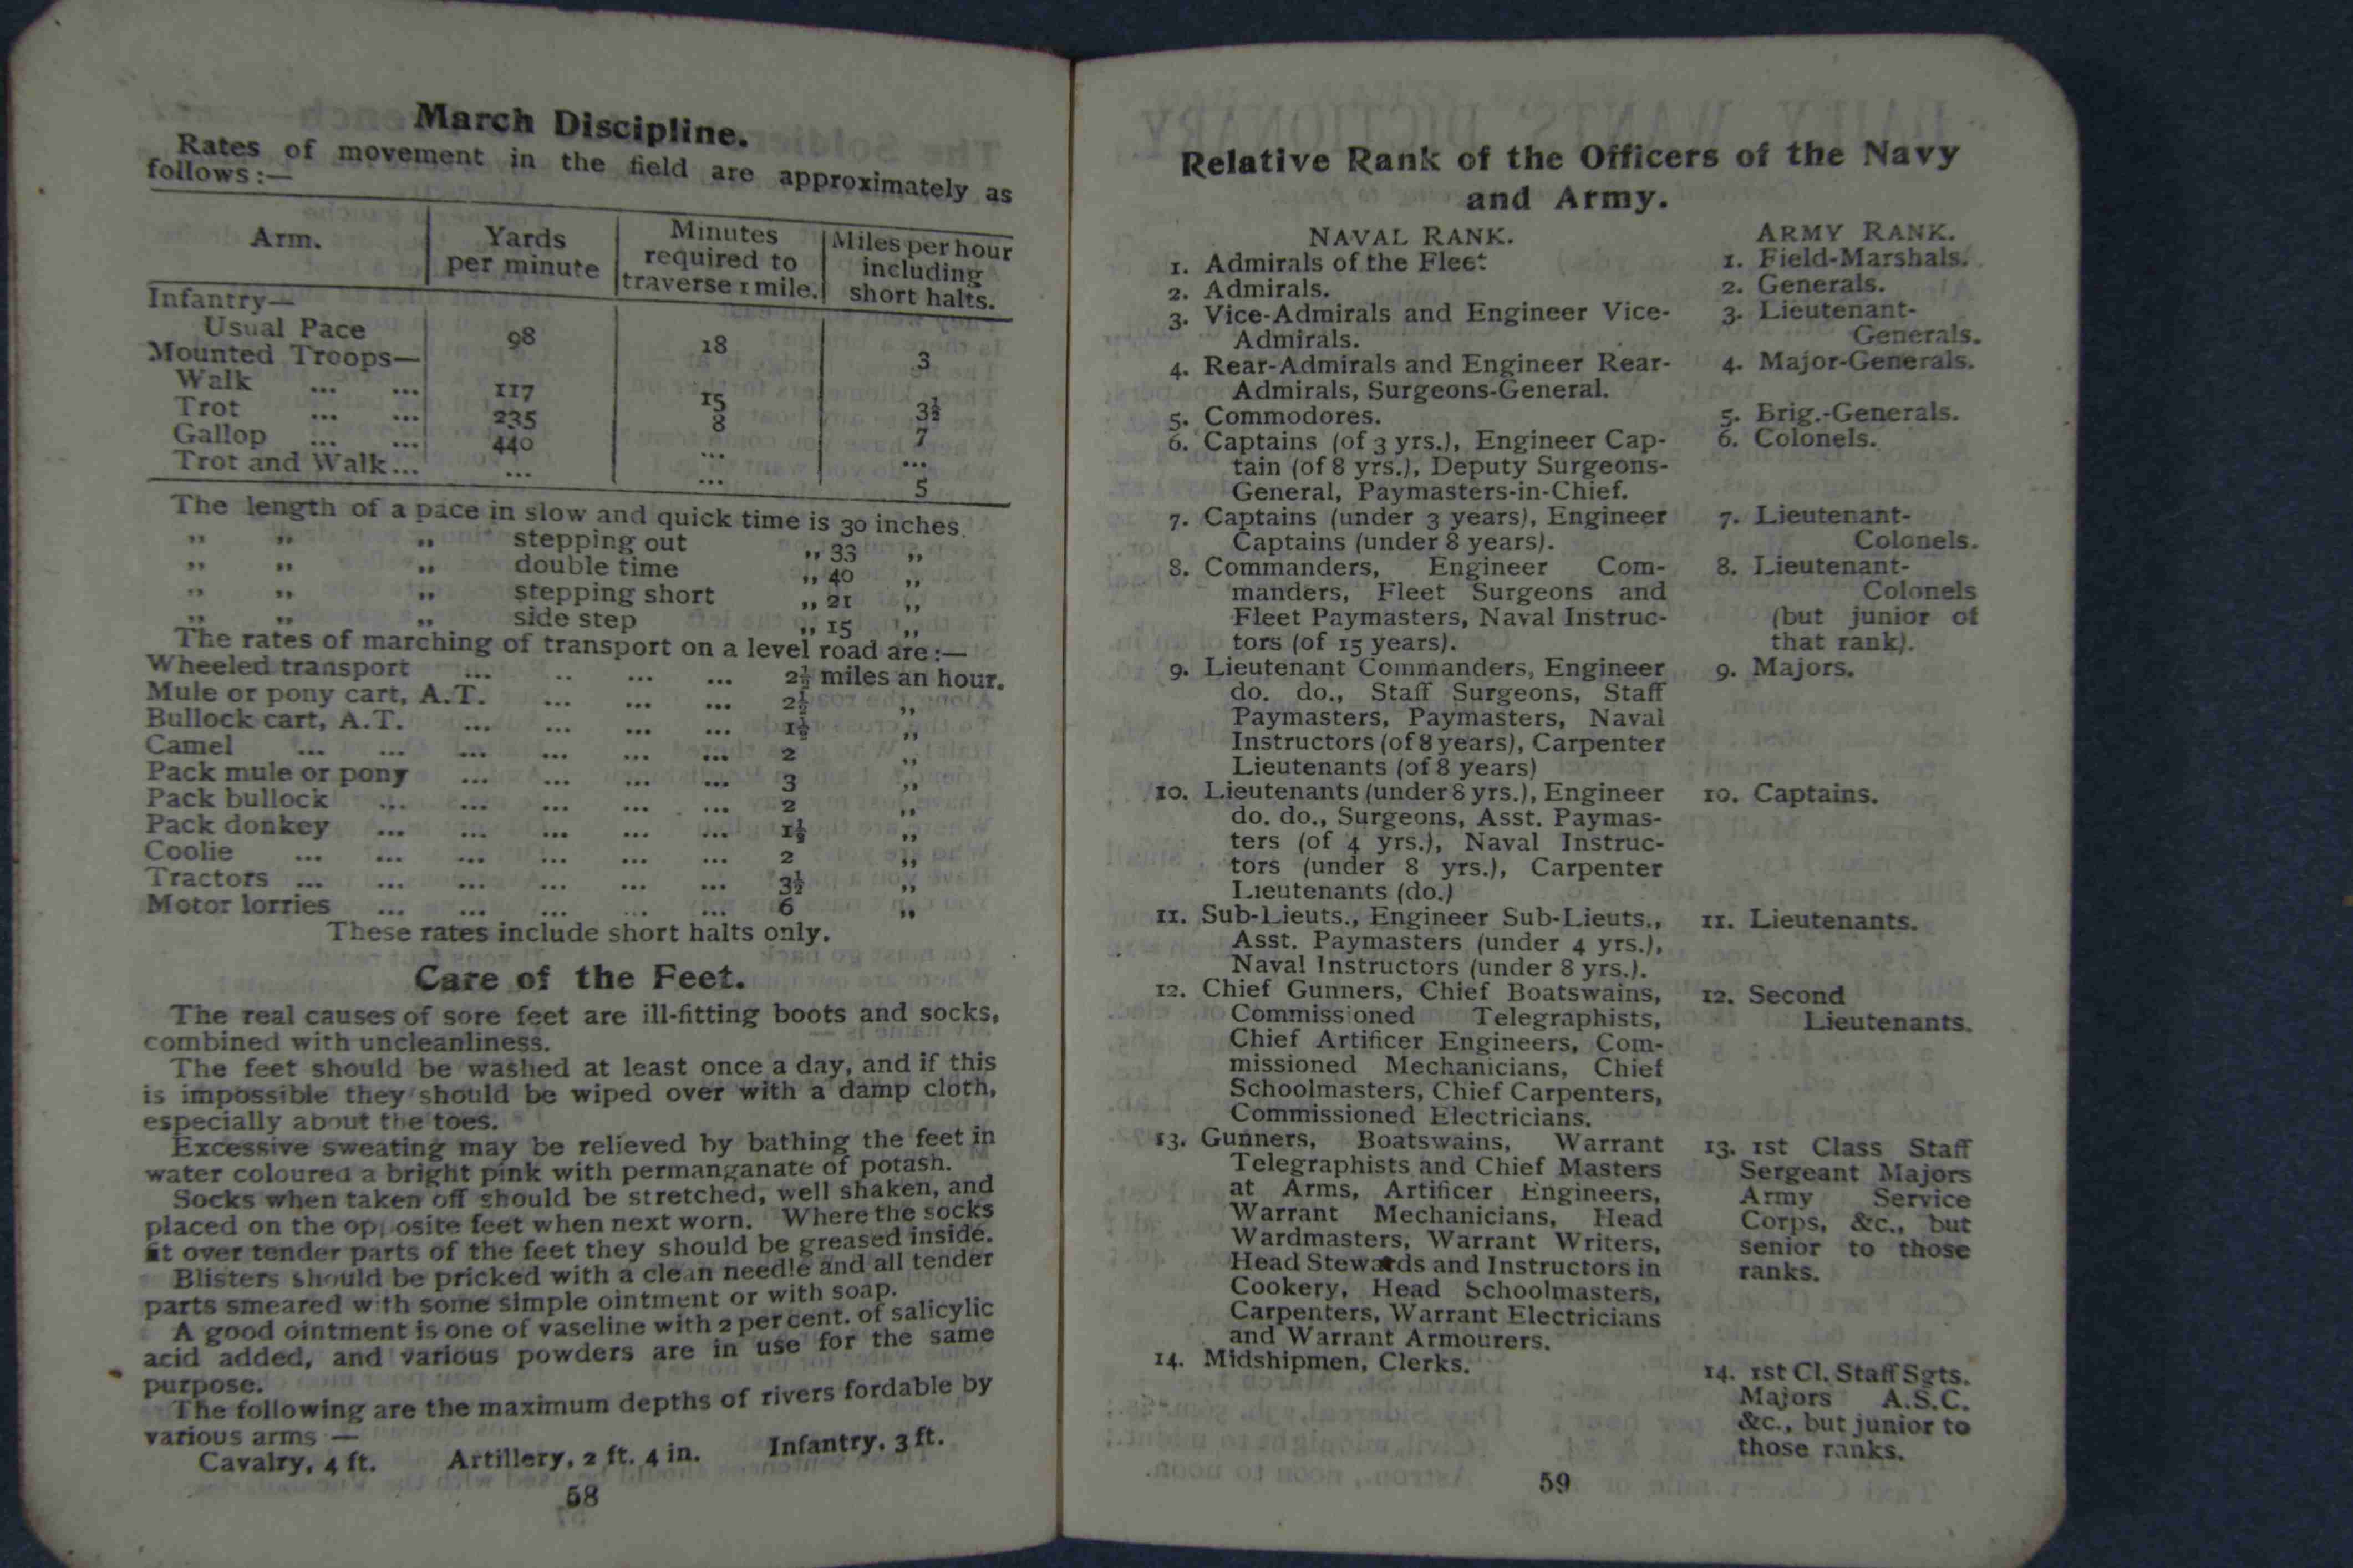 March Discipline.
Rates of movement in the field are approximately as
follows :—
Arm. Yards per minute Minutes required to traverse 1 mile. Miles per hour including short halts.
Infantry—
Usual Pace 98 18 3
Mounted Troops—
Walk ... ... 117 15 3½
Trot ... ... 235 8 7
Gallop ... ... 440 ... ...
Trot and Walk... ... ... 5
The length of a pace in slow and quick time is 30 inches.
„ „ „ stepping out „ 33 „
„ „ „ double time „ 40 „
„ „ „ stepping short „ 21 „
„ „ „ side step „ 15 „
The rates of marching of transport on a level road are :—
Wheeled transport ... .. ... ... 2½ miles an hour.
Mule or pony cart, A.T. ... ... ... 2½ „
Bullock cart, A.T. ... ... ... ... 1½ „
Camel ... ... ... ... ... ... 2 „
Pack mule or pony ... ... ... ... 3 „
Pack bullock ... ... ... ... ... 2 „
Pack donkey ... ... ... ... ... 1½ „
Coolie ... ... ... ... ... ... 2 „
Tractors ... ... ... ... ... ... 3½ „
Motor lorries ... ... ... ... ... 6 „
These rates include short halts only.
Care of the Feet.
The real causes of sore feet are ill-fitting boots and socks,
combined with uncleanliness.
The feet should be washed at least once a day, and if this
is impossible they should be wiped over with a damp cloth,
especially about the toes.
Excessive sweating may be relieved by bathing the feet in
water coloured a bright pink with permanganate of potash.
Socks when taken off should be stretched, well shaken, and
placed on the opposite feet when next worn. Where the socks
fit over tender parts of the feet they should be greased inside.
Blisters should be pricked with a clean needle and all tender
parts smeared with some simple ointment or with soap.
A good ointment is one of vaseline with 2 per cent. of salicylic
acid added, and various powders are in use for the same
purpose.
The following are the maximum depths of rivers fordable by
various arms —
Cavalry, 4 ft. Artillery, 2 ft. 4 in. Infantry. 3 ft.
58
Relative Rank of the Officers of the Navy
and Army.
NAVAL RANK.
1. Admirals of the Fleet
2. Admirals.
3. Vice-Admirals and Engineer Vice-
Admirals.
4. Rear-Admirals and Engineer Rear-
Admirals, Surgeons-General.
5. Commodores.
6. Captains (of 3 yrs.), Engineer Cap-
tain (of 8 yrs.), Deputy Surgeons-
General, Paymasters-in-Chief.
7. Captains (under 3 years), Engineer
Captains (under 8 years).
8. Commanders, Engineer Com-
manders, Fleet Surgeons and
Fleet Paymasters, Naval Instruc-
tors (of 15 years).
9. Lieutenant Commanders, Engineer
do. do., Staff Surgeons, Staff
Paymasters, Paymasters, Naval
Instructors (of 8 years), Carpenter
Lieutenants (of 8 years)
10. Lieutenants (under 8 yrs.), Engineer
do. do., Surgeons, Asst. Paymas-
ters (of 4 yrs.), Naval Instruc-
tors (under 8 yrs.), Carpenter
Lieutenants (do.)
11. Sub-Lieuts., Engineer Sub-Lieuts.,
Asst. Paymasters (under 4 yrs.),
Naval Instructors (under 8 yrs.).
12. Chief Gunners, Chief Boatswains,
Commissioned Telegraphists,
Chief Artificer Engineers, Com-
missioned Mechanicians, Chief
Schoolmasters, Chief Carpenters,
Commissioned Electricians.
13. Gunners, Boatswains, Warrant
Telegraphists and Chief Masters
at Arms, Artificer Engineers,
Warrant Mechanicians, Head
Wardmasters, Warrant Writers,
Head Stewards and Instructors in
Cookery, Head Schoolmasters,
Carpenters, Warrant Electricians
and Warrant Armourers.
14. Midshipmen, Clerks.
ARMY RANK.
1. Field-Marshals.
2. Generals.
3. Lieutenant-
Generals.
4. Major-Generals.
5. Brig.-Generals.
6. Colonels.
7. Lieutenant-
Colonels.
8. Lieutenant-
Colonels
(but junior of
that rank).
9. Majors.
10. Captains.
11. Lieutenants.
12. Second
Lieutenants.
13. 1st Class Staff
Sergeant Majors
Army Service
Corps, &c., but
senior to those
ranks.
14. 1st Cl. Staff Sgts.
Majors A.S.C.
&c., but junior to
those ranks.
59